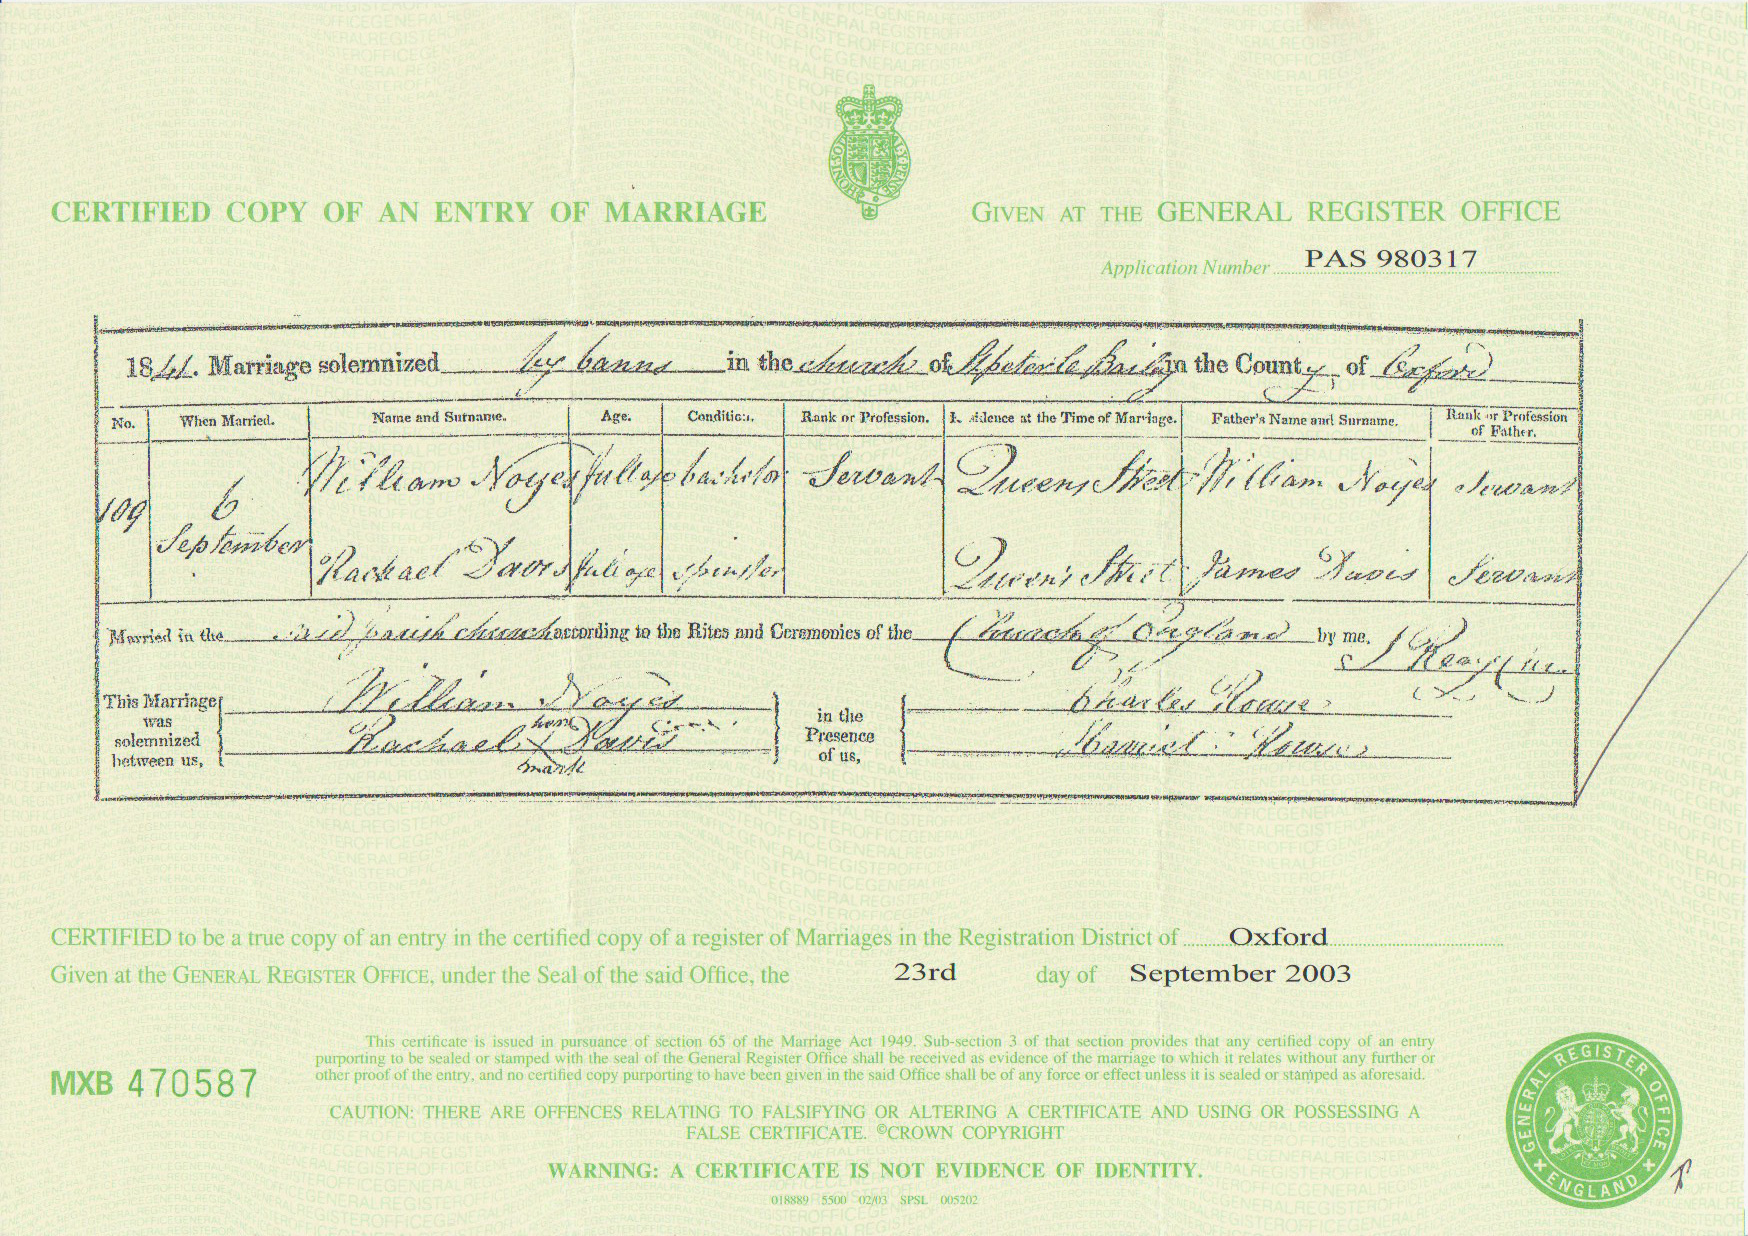 CERTIFIED COPY OF AN ENTRY OF MARRIAGE
GIVEN AT THE GENERAL REGISTER OFFICE
Application Number PAS 980317
1841. Marriage solemnized by banns in the church of St peter le Bailey in the County of Oxford
No. When Married. Name and Surname. Age. Condition. Rank or Profession. Residence at the Time of Marriage. Father's Name and Surname. Rank or Profession of Father.
109 6 September
William Noyes full age bachelor Servant Queens Street William Noyes Servant
Rachael Davis full age spinster Queen's Street James Davis Servant
Married in the said parish church according to the Rites and Ceremonies of the Church of England by me,
This Marriage was solemnized between us,
William Noyes
Rachael X Davis
her
mark
in the Presence of us,
Charles Rowse
Harriet Rowse
CERTIFIED to be a true copy of an entry in the certified copy of a register of Marriages in the Registration District of Oxford
Given at the GENERAL REGISTER OFFICE, under the Seal of the said Office, the 23rd day of September 2003
This certificate is issued in pursuance of section 65 of the Marriage Act 1949. Sub-section 3 of that section provides that any certified copy of an entry
purporting to be sealed or stamped with the seal of the General Register Office shall be received as evidence of the marriage to which it relates without any further or
other proof of the entry, and no certified copy purporting to have been given in the said Office shall be of any force or effect unless it is sealed or stamped as aforesaid.
MXB 470587
CAUTION: THERE ARE OFFENCES RELATING TO FALSIFYING OR ALTERING A CERTIFICATE AND USING OR POSSESSING A
FALSE CERTIFICATE. ©CROWN COPYRIGHT
WARNING: A CERTIFICATE IS NOT EVIDENCE OF IDENTITY.
018889 5500 02/03 SPSL 005202
GENERAL REGISTER OFFICE
ENGLAND